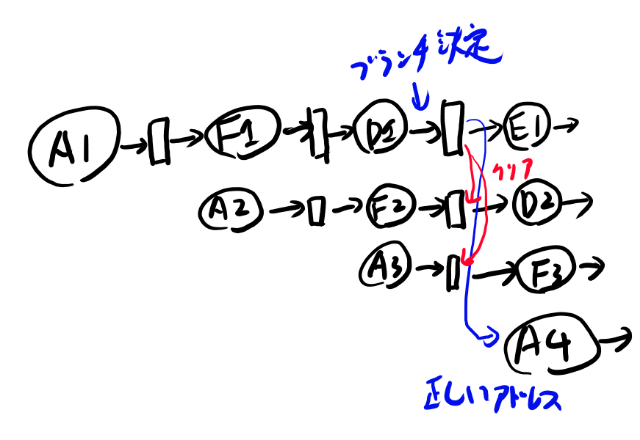 ブランチ決定
A1
F1
D1
E1
クリア
A2
F2
D2
A3
F3
A4
正しいアドレス